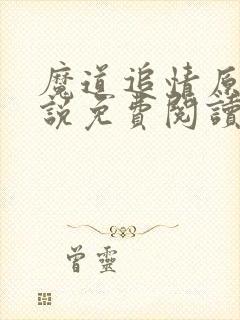 魔道追情原
說免費閱讀
曾靈